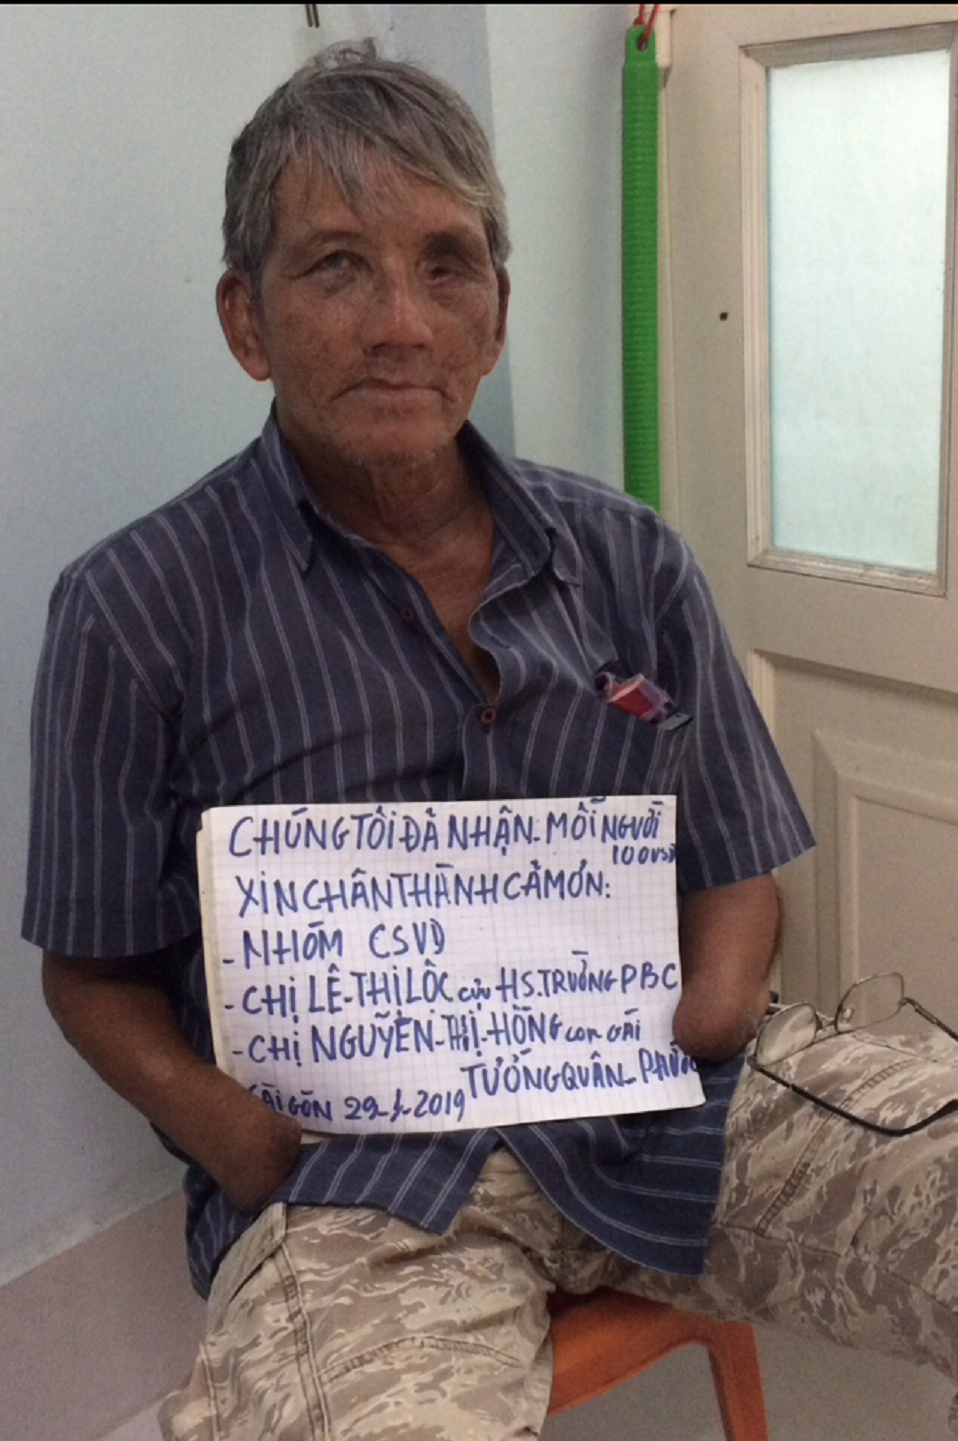 CHÚNG TÔI ĐÃ NHẬN - MỖI NGƯỜI
100USD
XIN CHÂN THÀNH CẢM ƠN:
- NHÓM CSVD
- CHỊ LÊ-THỊ LỘC cựu HS. TRƯỜNG PBC
- CHỊ NGUYỄN-THỊ-HỒNG con GÁI
TƯỚNG QUÂN-
SÀI GÒN 29-1-2019